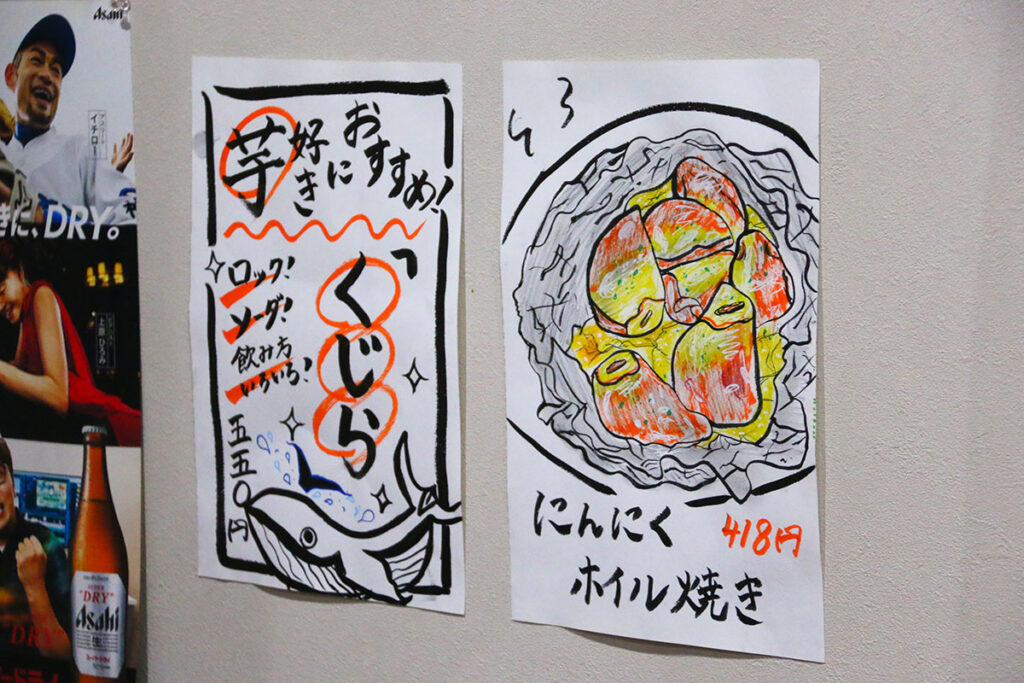 Asahi
アスリート
イチロー
きに、DRY。
上原 ひろみ
"DRY"
Asahi
生
芋
好きに
おすすめ!
「くじら
ロック!
ソーダ!
飲み方
いろいろ!
五五〇円
にんにく
ホイル焼き
418円